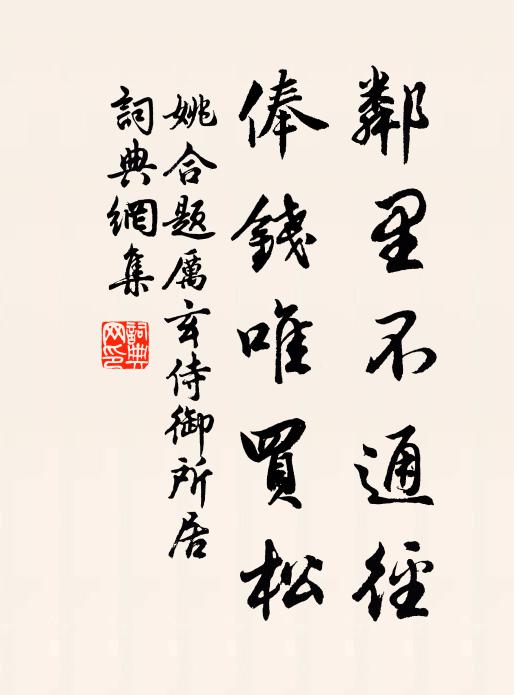 鄰里不通徑
俸錢唯買松
姚合題厲玄侍御所居
詞典網集
詞典
网印